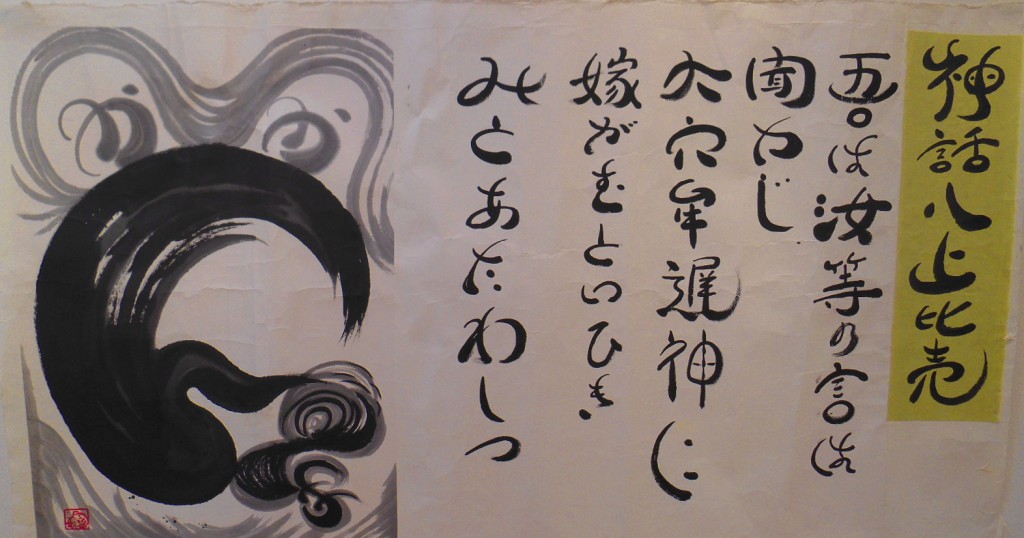 神話八上比売
吾は汝等の言は
聞かじ
大穴牟遅神に
嫁がむといひき
みとあたわしつ